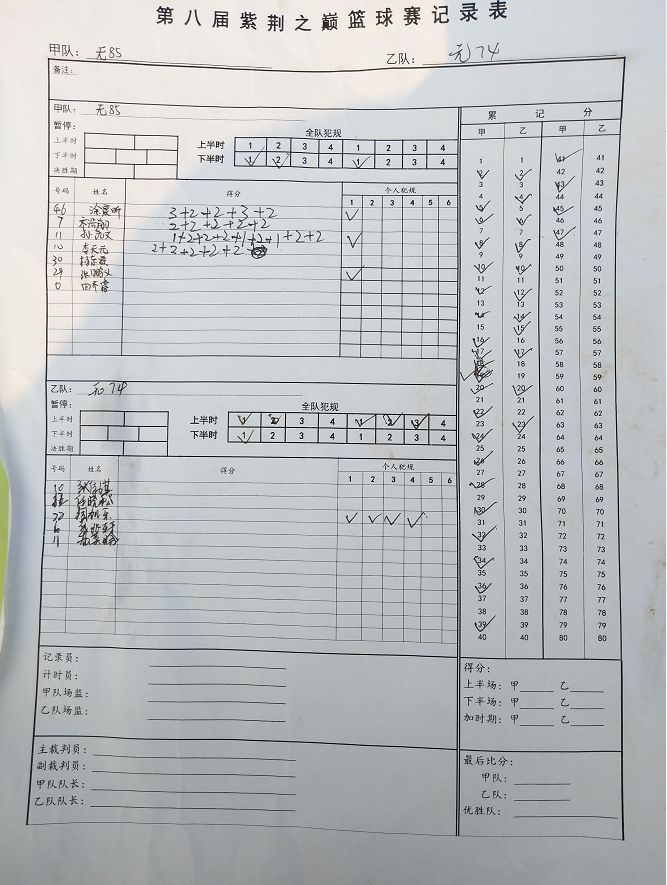 第八届紫荆之巅篮球赛记录表
甲队: 无85 乙队: 无74
备注:
甲队: 无85
暂停:
全队犯规
上半时 上半时 1 2 3 4 1 2 3 4
下半时 下半时 1 2 3 4 1 2 3 4
决胜期
号码 姓名 得分 个人犯规
1 2 3 4 5 6
46 3+2+2+3+2
7 2+2+2+2+2
11
10 李天元 2+2+2+2+2
30
29
0
乙队: 无74
暂停:
全队犯规
上半时 上半时 1 2 3 4 1 2 3 4
下半时 下半时 1 2 3 4 1 2 3 4
决胜期
号码 姓名 得分 个人犯规
1 2 3 4 5 6
10
6
11
记录员:
计时员:
甲队场监:
乙队场监:
主裁判员:
副裁判员:
甲队队长:
乙队队长:
累记分
甲 乙 甲 乙
1 1 41 41
2 2 42 42
3 3 43 43
4 4 44 44
5 5 45 45
6 6 46 46
7 7 47 47
8 8 48 48
9 9 49 49
10 10 50 50
11 11 51 51
12 12 52 52
13 13 53 53
14 14 54 54
15 15 55 55
16 16 56 56
17 17 57 57
18 58 58
19 59 59
20 20 60 60
21 21 61 61
22 22 62 62
23 23 63 63
24 24 64 64
25 25 65 65
26 26 66 66
27 27 67 67
28 28 68 68
29 29 69 69
30 30 70 70
31 31 71 71
32 32 72 72
33 33 73 73
34 34 74 74
35 35 75 75
36 36 76 76
37 37 77 77
38 38 78 78
39 39 79 79
40 40 80 80
得分:
上半场: 甲 乙
下半场: 甲 乙
加时期: 甲 乙
最后比分:
甲队:
乙队:
优胜队: